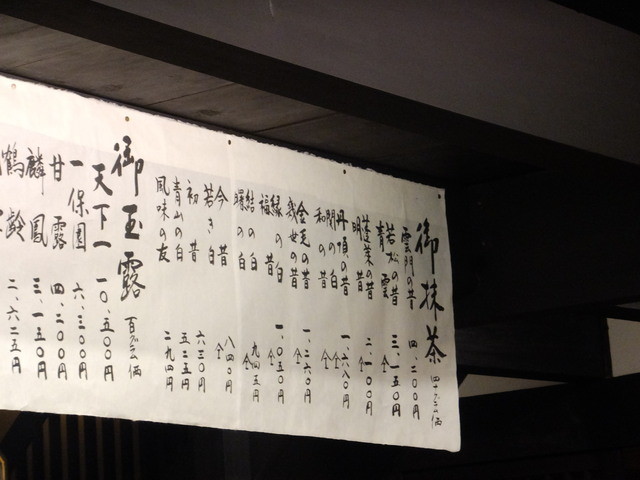 御抹茶 四十グラム価
雲門の昔 四、二〇〇円
若松の昔 三、一五〇円
青雲 仝
蓬莱の昔 二、一〇〇円
明昔 仝
丹頂の昔 一、六八〇円
関の白 仝
和の昔 仝
金毛の昔 一、二六〇円
幾世の昔 仝
縁の白 一、〇五〇円
福昔 仝
結の白 九四五円
曙の白 仝
今昔 八四〇円
若き白 仝
初昔 六三〇円
青山の白 五二五円
風味の友 二九四円
御玉露 百グラム価
天下一 一〇、五〇〇円
一保園 六、三〇〇円
甘露 四、二〇〇円
麟鳳 三、一五〇円
鶴齢 二、六二五円